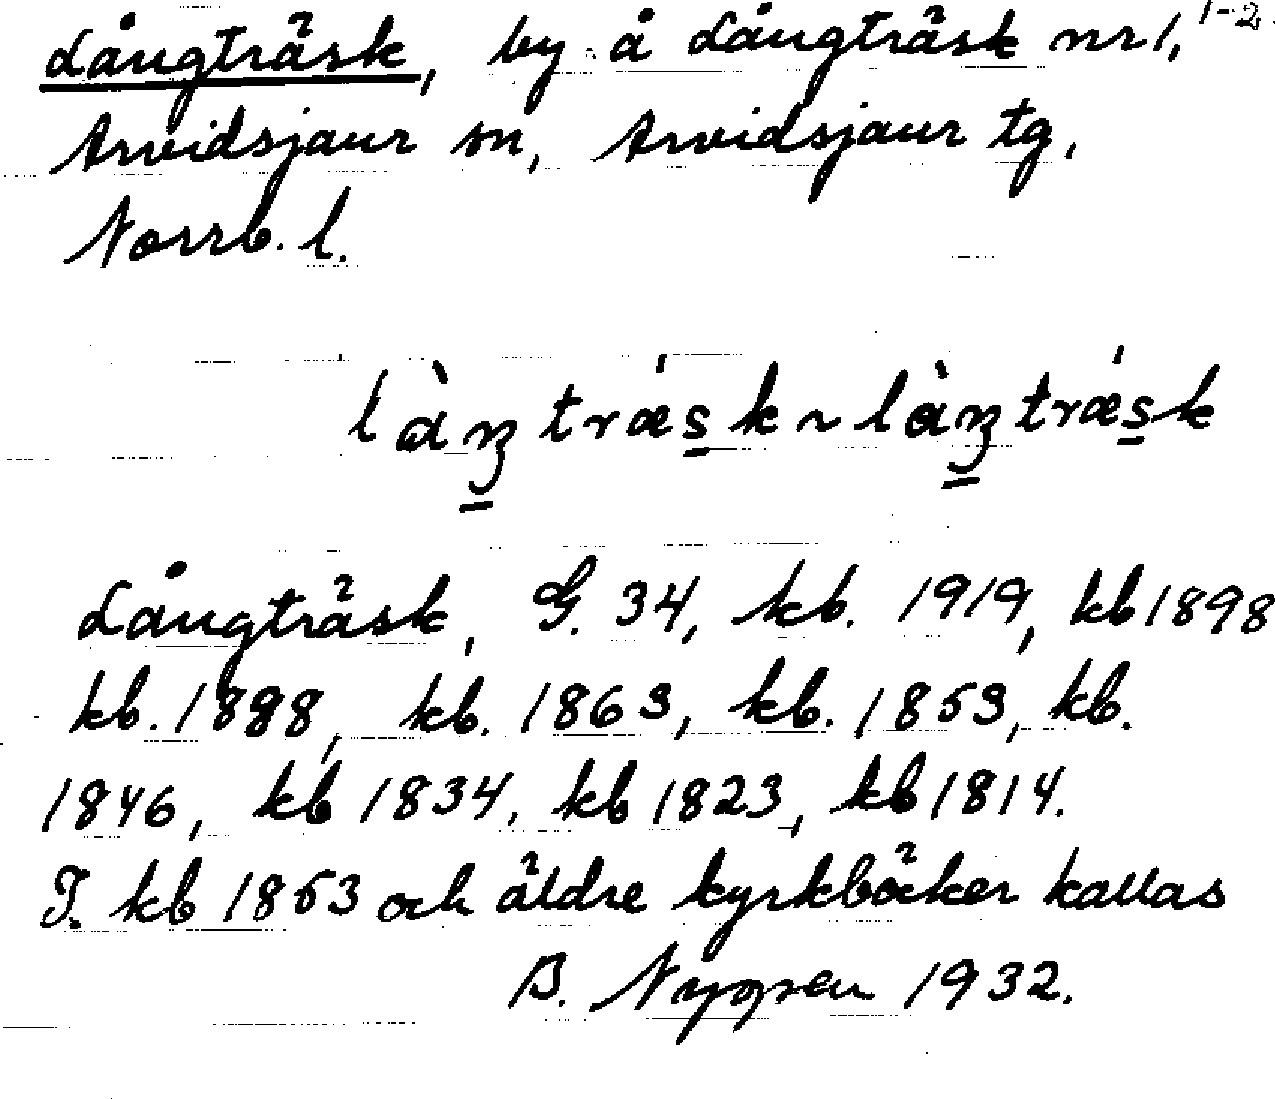 Långträsk, by å Långträsk nr 1, 1-2
Arvidsjaur sn, Arvidsjaur tg,
Norrb. l.
Långträsk, G. 34, kb. 1919, kb 1898
kb. 1888, kb. 1863, kb. 1853, kb.
1846, kb 1834, kb 1823, kb 1814.
I. kb 1853 och äldre kyrkböcker kallas
B. Nygren 1932.